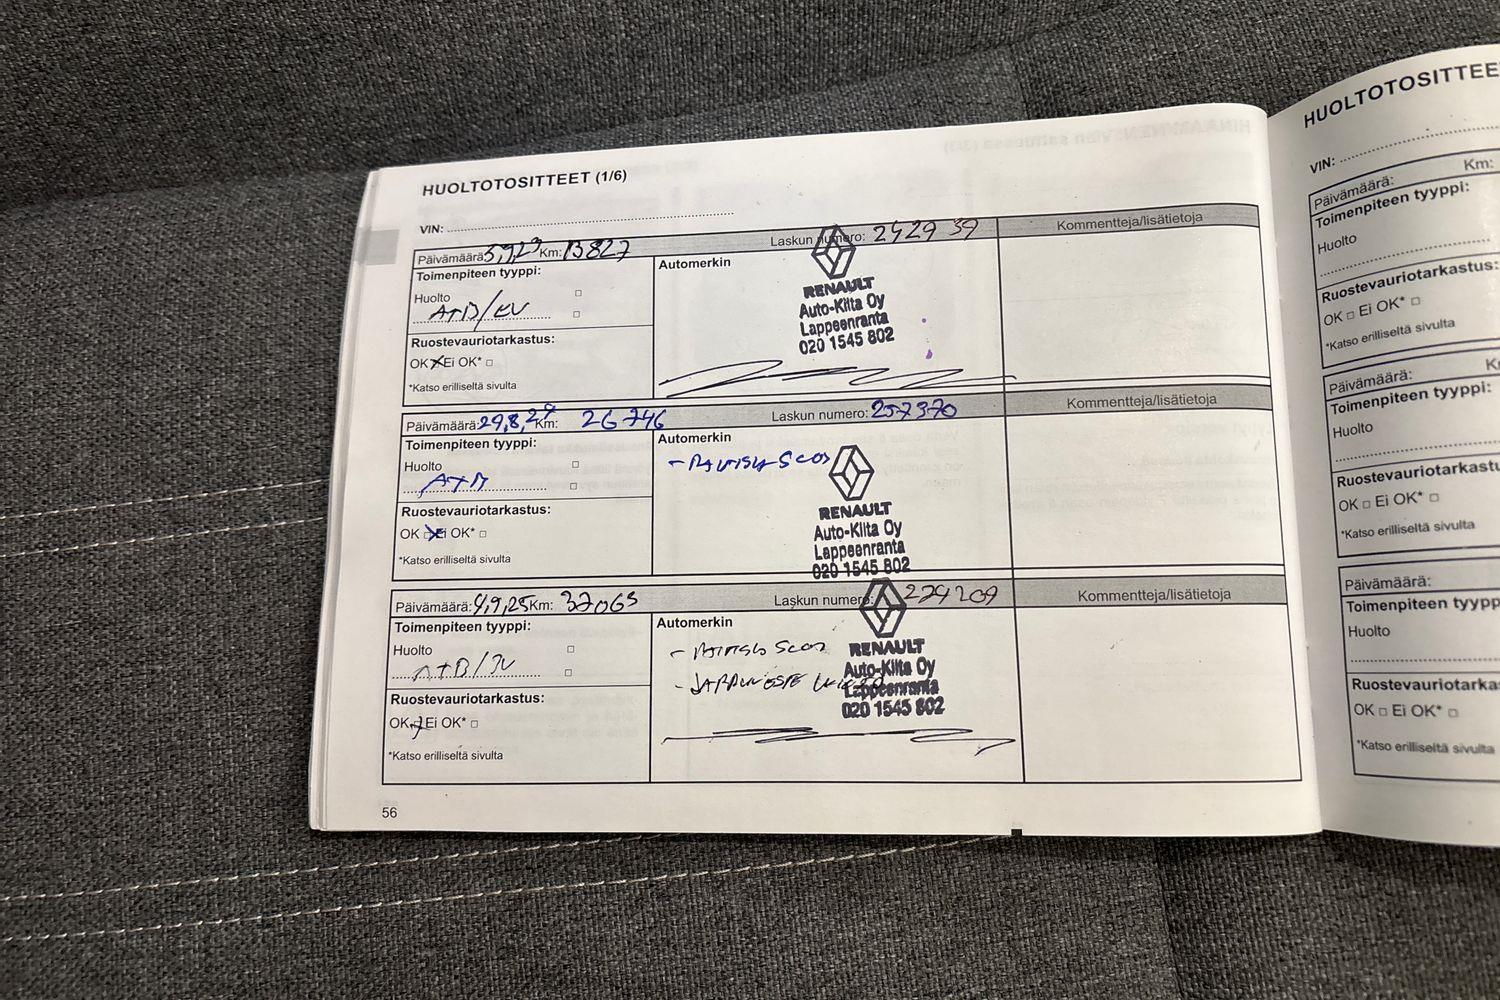 HUOLTOTOSITTEET (1/6)
VIN:
Päivämäärä: 5,9,23 Km: 13827 Laskun numero: 242939 Kommentteja/lisätietoja
Toimenpiteen tyyppi: Automerkin
Huolto
A+B/
RENAULT
Auto-Kilta Oy
Lappeenranta
020 1545 802
Ruostevauriotarkastus:
OK Ei OK*
*Katso erilliseltä sivulta
Päivämäärä: 29,8,24 Km: 26746 Laskun numero: 257370 Kommentteja/lisätietoja
Toimenpiteen tyyppi: Automerkin
Huolto
RENAULT
Auto-Kilta Oy
Lappeenranta
020 1545 802
Ruostevauriotarkastus:
OK Ei OK*
*Katso erilliseltä sivulta
Päivämäärä: 4,9,25 Km: 37065 Laskun numero: 274209 Kommentteja/lisätietoja
Toimenpiteen tyyppi: Automerkin
Huolto
A+B/
RENAULT
Auto-Kilta Oy
Lappeenranta
020 1545 802
Ruostevauriotarkastus:
OK Ei OK*
*Katso erilliseltä sivulta
56
HUOLTOTOSITTEE
VIN:
Päivämäärä: Km:
Toimenpiteen tyyppi:
Huolto
Ruostevauriotarkastus:
OK Ei OK*
*Katso erilliseltä sivulta
Päivämäärä:
Toimenpiteen tyyppi:
Huolto
Ruostevauriotarkastu
OK Ei OK*
*Katso erilliseltä sivulta
Päivämäärä:
Toimenpiteen tyypp
Huolto
Ruostevauriotarka
OK Ei OK*
*Katso erilliseltä sivulta